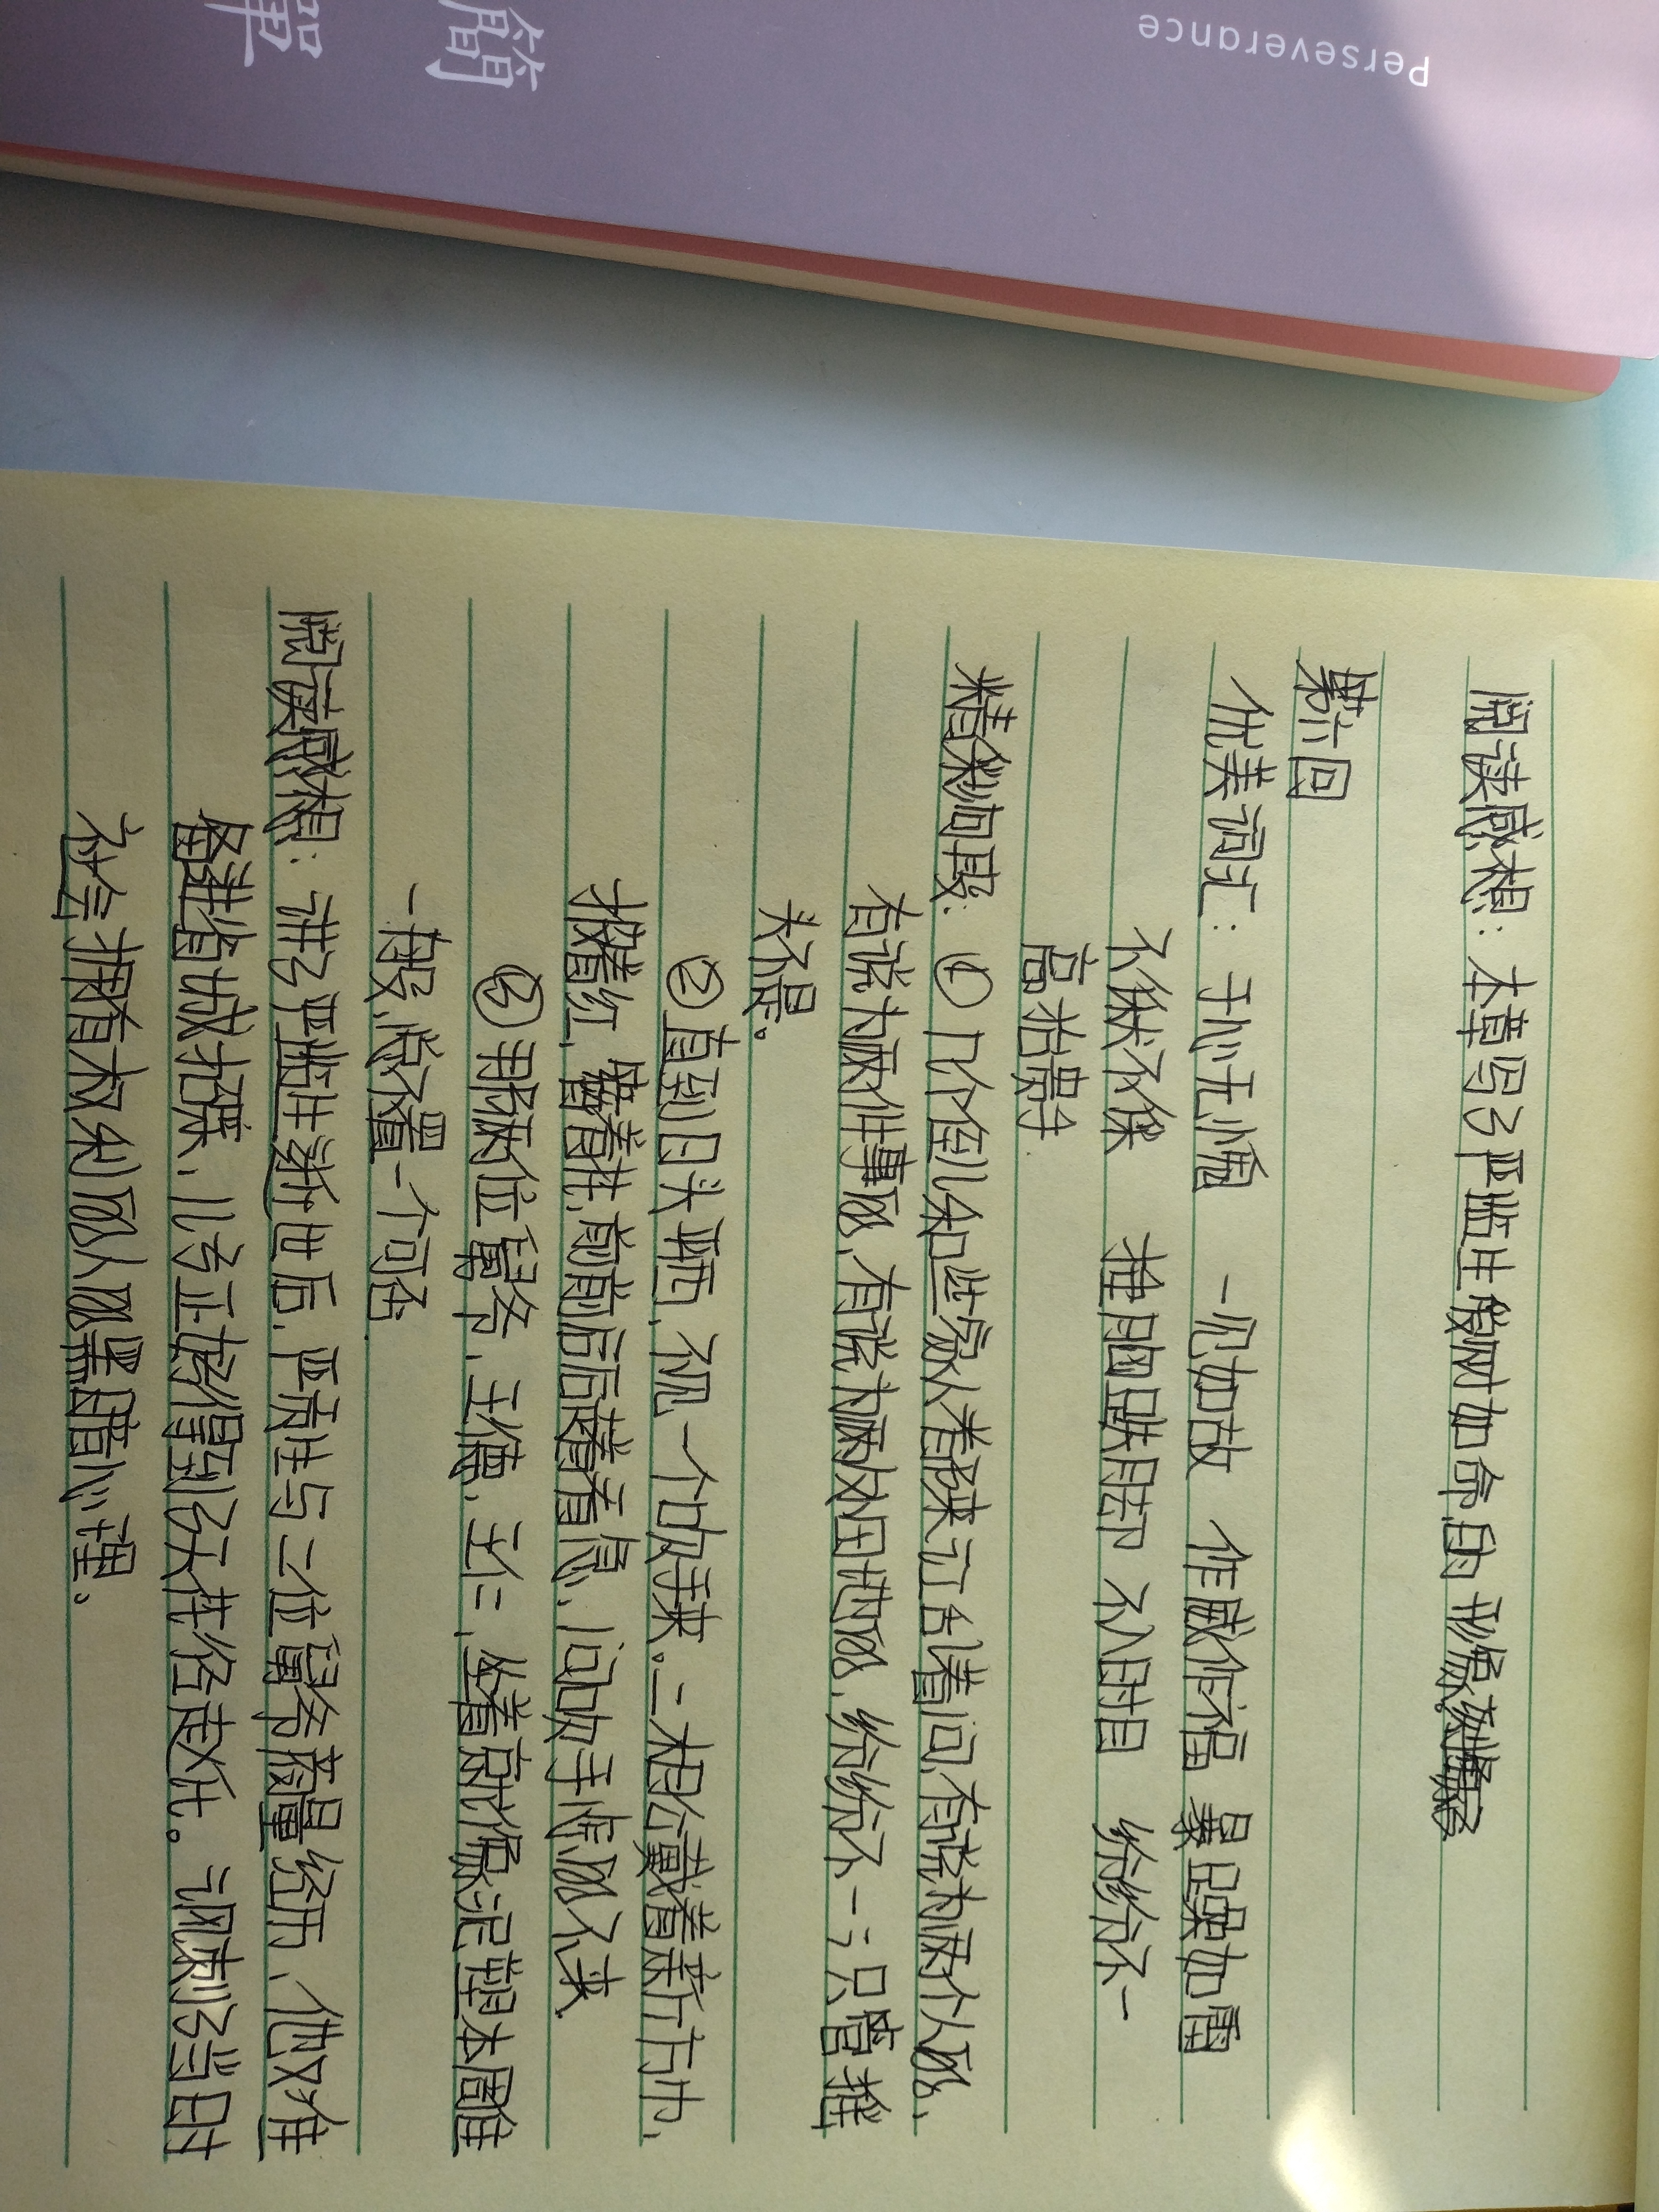 簡單
Perseverance
阅读感想：本章写了严监生爱财如命的形象。
第六回
优美词汇：于心无愧 一见如故 作威作福 暴躁如雷
不瞅不睬 推腿跌脚 不八时 纷纷不一
高抬贵手
精彩句段：① 几个侄儿和些家人者阝来讧乱着问，有说为两个人的，
有说为两件事的，有说为两处田地的，纷纷不一；只管摇
头不是。
②直到日头平西，不见一个吹手来。二相公戴着新方巾，
披着红，簪着花，前前后后走着着急，问吹手怎的不来
③那两位舅爷，王德，王仁，坐着就像泥塑木雕
一般，总不置一个可否
阅读感想：讲了严监生逝世后，严贡生与二位舅爷商量经历，他又准
备进省城招来，儿子正好得到了天花给走死。讽刺了当时
社会拥有权利的人的黑暗心理。